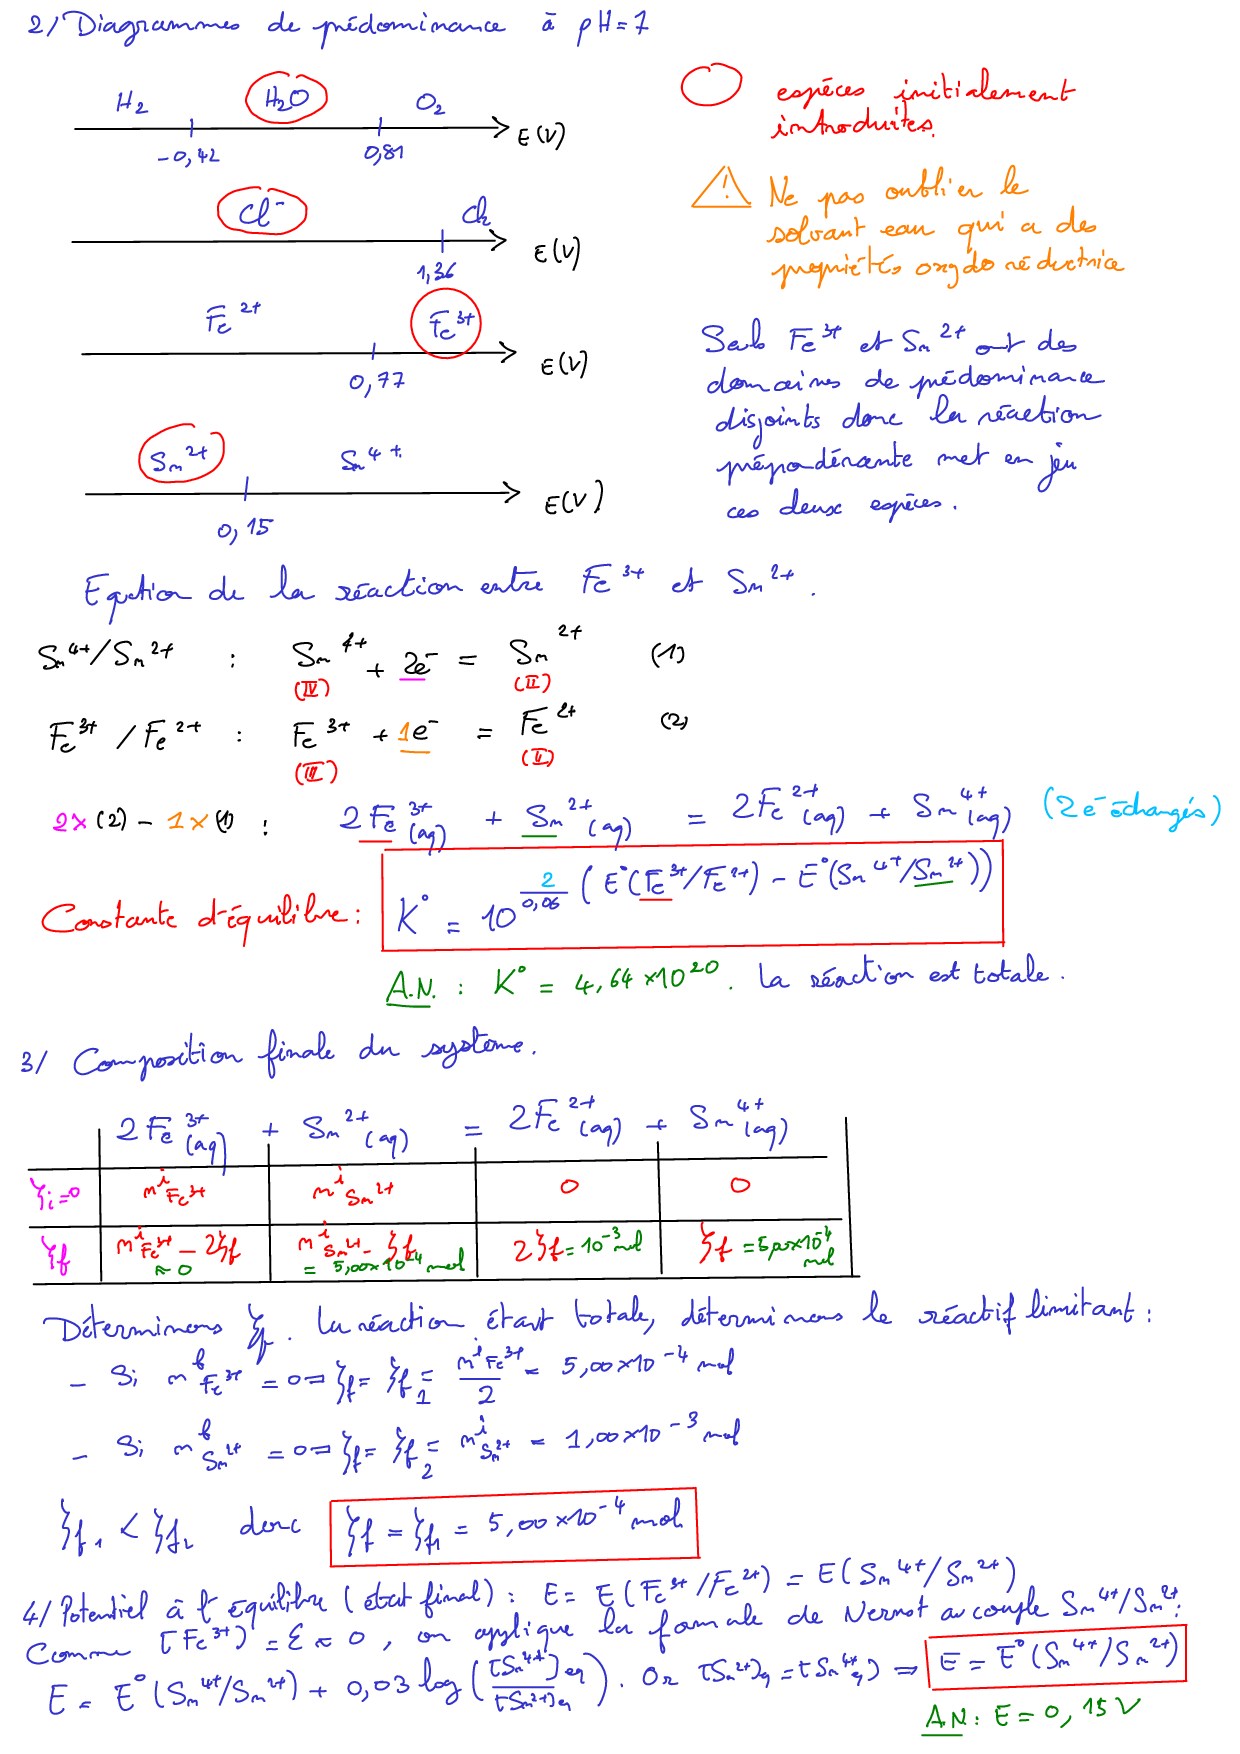 2/ Diagrammes de prédominance à pH=7
H₂ H₂O O₂
-0,42 0,81 E(V)
Cl⁻ Cl₂
1,36 E(V)
Fe²⁺ Fe³⁺
0,77 E(V)
Sn²⁺ Sn⁴⁺
0,15 E(V)
espèces initialement
introduites.
⚠ Ne pas oublier le
solvant eau qui a des
propriétés oxydo réductrice
Seuls Fe³⁺ et Sn²⁺ ont des
domaines de prédominance
disjoints donc la réaction
prépondérante met en jeu
ces deux espèces.
Equation de la réaction entre Fe³⁺ et Sn²⁺.
Sn⁴⁺/Sn²⁺ : Sn⁴⁺ + 2e⁻ = Sn²⁺ (1)
(IV) (II)
Fe³⁺/Fe²⁺ : Fe³⁺ + 1e⁻ = Fe²⁺ (2)
(III) (II)
2×(2) - 1×(1) : 2Fe³⁺(aq) + Sn²⁺(aq) = 2Fe²⁺(aq) + Sn⁴⁺(aq) (2e⁻ échangés)
Constante d'équilibre : K° = 10^(2/0,06 (E°(Fe³⁺/Fe²⁺) - E°(Sn⁴⁺/Sn²⁺)))
A.N. : K° = 4,64×10²⁰. La réaction est totale.
3/ Composition finale du système.
2Fe³⁺(aq) + Sn²⁺(aq) = 2Fe²⁺(aq) + Sn⁴⁺(aq)
ξi=0 nⁱFe³⁺ nⁱSn²⁺ 0 0
ξf nⁱFe³⁺ - 2ξf ≈ 0 nⁱSn²⁺ - ξf = 5,00×10⁻⁴ mol 2ξf = 10⁻³ mol ξf = 5,00×10⁻⁴ mol
Déterminons ξf. La réaction étant totale, déterminons le réactif limitant :
- Si nᶠFe³⁺ = 0 ⇒ ξf = ξf1 = nⁱFe³⁺/2 = 5,00×10⁻⁴ mol
- Si nᶠSn²⁺ = 0 ⇒ ξf = ξf2 = nⁱSn²⁺ = 1,00×10⁻³ mol
ξf1 < ξf2 donc ξf = ξf1 = 5,00×10⁻⁴ mol
4/ Potentiel à l'équilibre (état final) : E = E(Fe³⁺/Fe²⁺) = E(Sn⁴⁺/Sn²⁺)
Comme [Fe³⁺] = ε ≈ 0, on applique la formule de Nernst au couple Sn⁴⁺/Sn²⁺ :
E = E°(Sn⁴⁺/Sn²⁺) + 0,03 log([Sn⁴⁺]eq/[Sn²⁺]eq). Or [Sn²⁺]éq = [Sn⁴⁺éq) ⇒ E = E°(Sn⁴⁺/Sn²⁺)
A.N : E = 0,15V